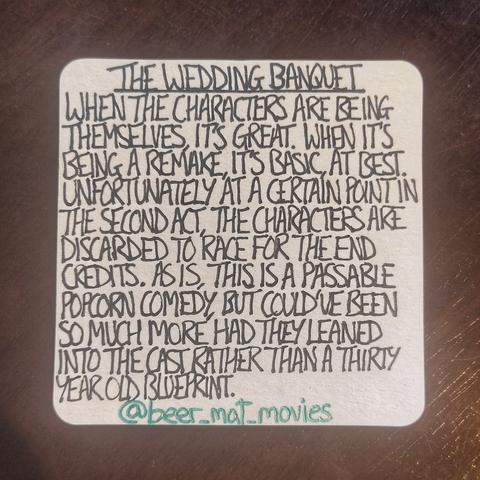 THE WEDDING BANQUET
WHEN THE CHARACTERS ARE BEING
THEMSELVES, IT'S GREAT. WHEN IT'S
BEING A REMAKE, IT'S BASIC, AT BEST.
UNFORTUNATELY AT A CERTAIN POINT IN
THE SECOND ACT, THE CHARACTERS ARE
DISCARDED TO RACE FOR THE END
CREDITS. AS IS, THIS IS A PASSABLE
POPCORN COMEDY, BUT COULD'VE BEEN
SO MUCH MORE HAD THEY LEANED
INTO THE CAST RATHER THAN A THIRTY
YEAR OLD BLUEPRINT.
@beer_mat_movies